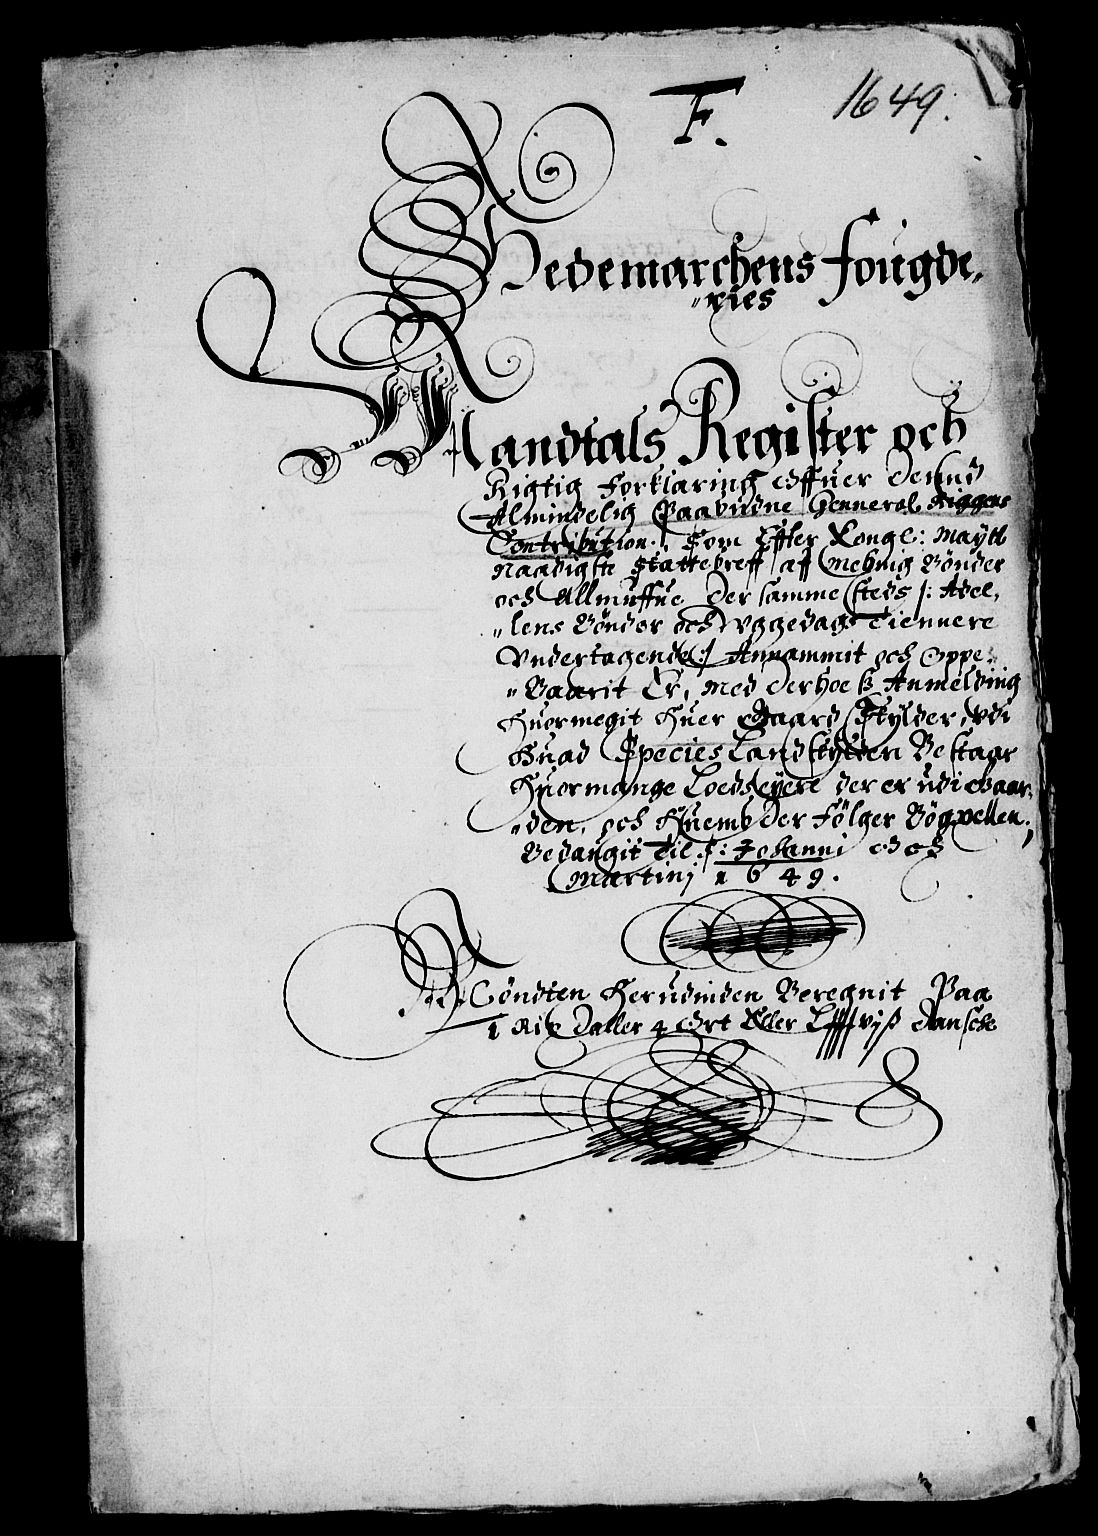 F.
1649.
Hedemarchens fougde„
„ries
Mandtals Register och
Rigtig Forklaring Offuer Denne
Almindelig Paabudne Genneral Kiggens
Contribution. Som Effter Kongl: Maytt
Naadigste Skattebreff / aff Menig Bønder
och Allmuffue Der samme steds /: Adel,
„lens Bønder och Uggedags Tiennere
Undertagende :/ Annammit och Oppe„
„Baarit Er, Med Derhoeß Anmelding
Huormegit Huer Gaard Skylder, Udi
Huad Species Landskylden Bestaar
Huormange Lodseyere der er udi Gaar„
„den, och Huemb Der Følger Bøgxellen.
Bedaugit Til S: Johanni Och
Martini 1649.
Mønten Herudinden Beregnit Paa
1 Rix Daller 4 Ort Eller Lffffvjß dansche